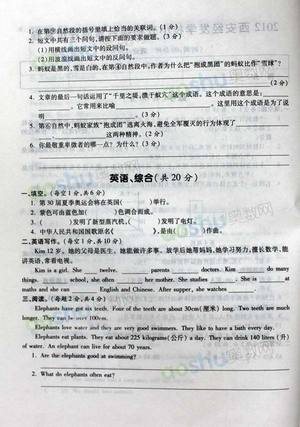 1. 在第⑨自然段的括号里填上恰当的关联词。(1分)
2. 短文中共有三个问句,请按下面的要求做题。(2分)
(1)用横线画出短文中的设问句。
(2)用波浪线画出短文中的反问句。
3. 蚂蚁是黑的,雪是白的,在第④自然段中,作者为什么把"抱成黑团"的蚂蚁比作"雪球"?
(3分)
4. 文章的最后一句话运用了"千里之堤,溃于蚁穴"这个成语。这个成语的意思是:
,它常用来比喻 。这里用这个成语是为了说
明 。(3分)
5. 第⑥自然段中,蚂蚁家族"抱成团"逃离火海,避免全军覆灭的行为体现了
这两种精神。(2分)
6. 你最敬重卑微者的哪一点?为什么?(3分)
英语、综合(共20分)
一、填空。(每空1分,共6分)
1. 第30届夏季奥运会将在英国( )举行。
2. 紫色可由蓝色加( )色调合而成。
3. ( )发明了蒸汽机,( )发明了电灯。
4. 中华人民共和国国歌名( ),是由( )作曲。
二、英语写作。(每空1分,共10分)
Kim 12岁。她的父母是医生。她能做许多事。放学后她帮妈妈,她学习努力,擅长数学,能
讲英语,常看电视。
Kim is a girl. She twelve. parents doctors. Kim do many
things. school, she her mother. She studies . She is at
maths and she can English and Chinese. After supper, she watches .
三、阅读。(每题2分,共4分)
Elephants have got six teeth. Four of the teeth are about 30cm(厘米) long. Two teeth are much
longer. They can be over 100cm.
Elephants love water and they are very good swimmers. They like to have a bath every day.
Elephants eat plants. They eat about 225 kilograms(公斤) a day. They can drink 140 liters (升)
of water. An elephant can live for about 70 years.
1. Are the elephants good at swimming?
2. What do elephants often eat?